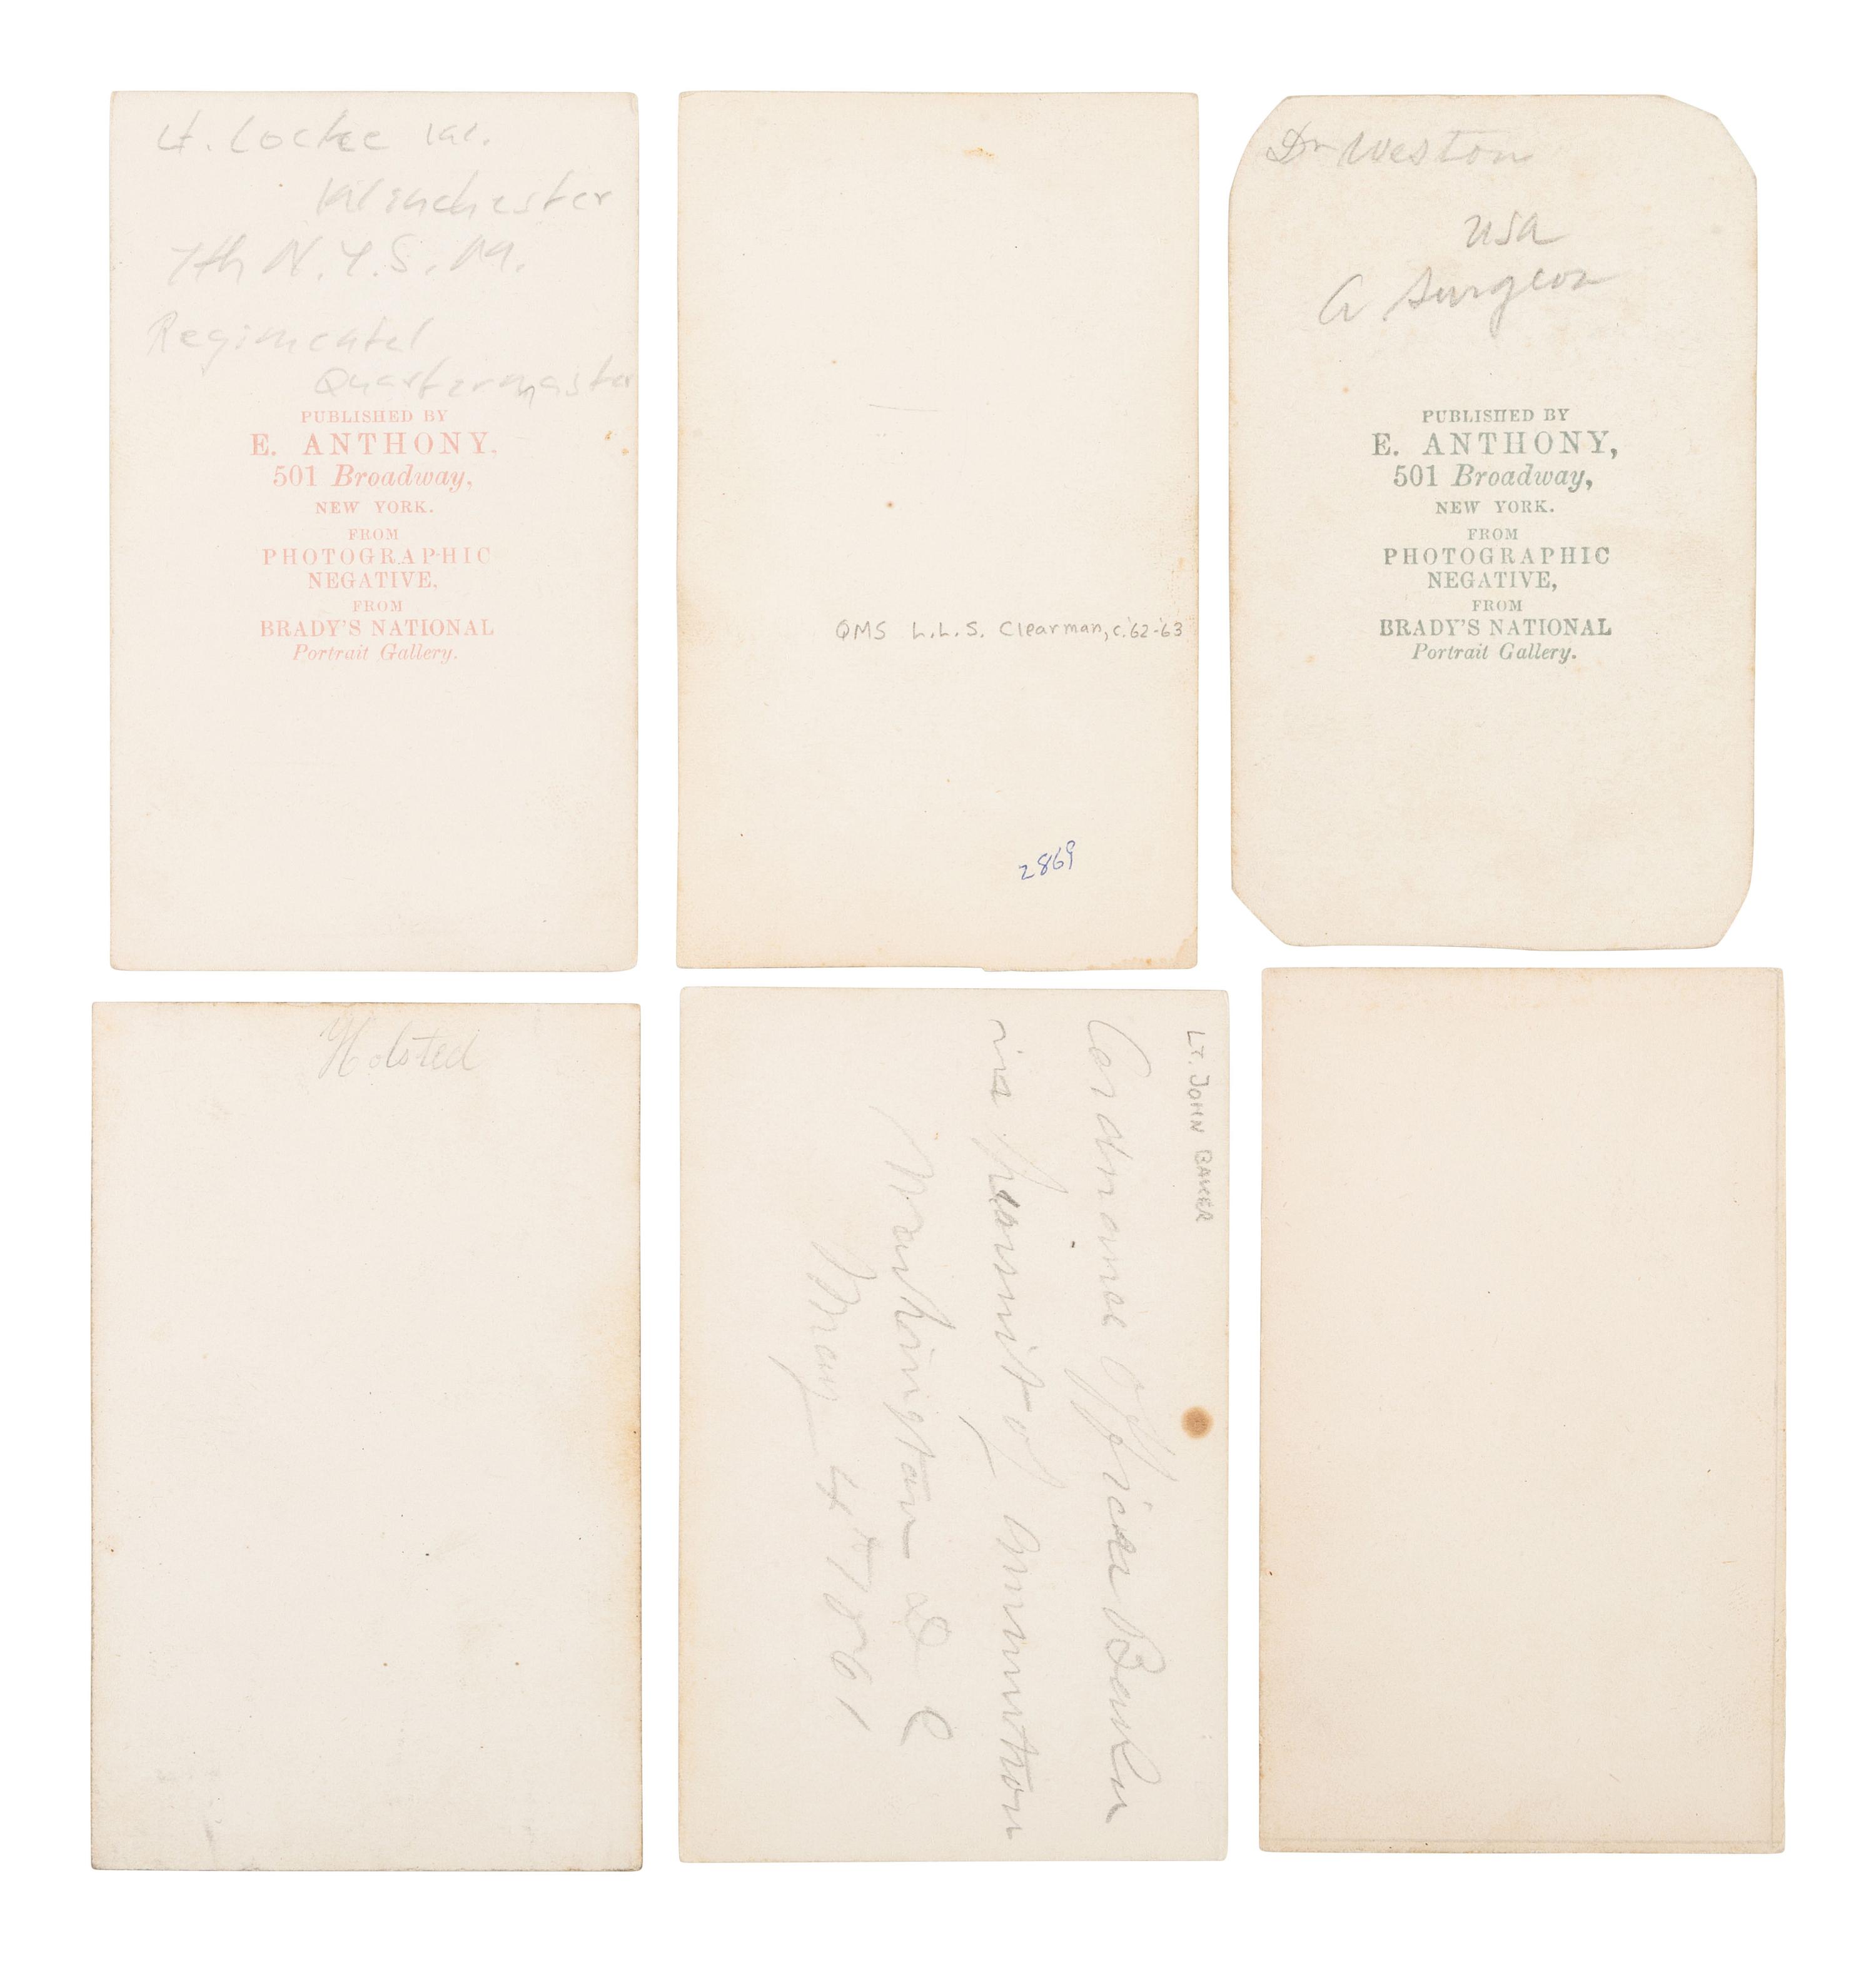 Lt. Locke W.
Winchester
7th N.Y.S.M.
Regimental
Quartermaster
PUBLISHED BY
E. ANTHONY,
501 Broadway,
NEW YORK.
FROM
PHOTOGRAPHIC
NEGATIVE,
FROM
BRADY'S NATIONAL
Portrait Gallery.
QMS L.L.S. Clearman, c.'62-'63
2869
Dr Weston
USA
A Surgeon
PUBLISHED BY
E. ANTHONY,
501 Broadway,
NEW YORK.
FROM
PHOTOGRAPHIC
NEGATIVE,
FROM
BRADY'S NATIONAL
Portrait Gallery.
Holsted
LT. JOHN BAKER
Ordnance Officer Baker
in of Ammunition
Washington D C
May 4th 1861